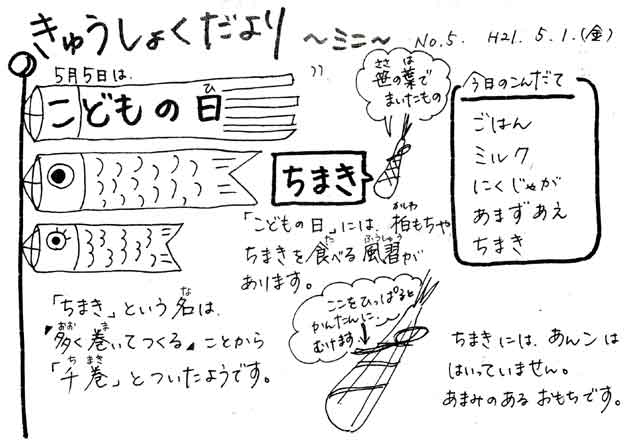 きゅうしょくだより
～ミニ～
No.5. H21. 5. 1. (金)
5月5日は、
こどもの日
ひ
ささ は
笹の葉で
まいたもの
ちまき
今日のこんだて
ごはん
ミルク
にくじゃが
あまずあえ
ちまき
かしわ
「こどもの日」には、柏もちや
た ふうしゅう
ちまきを食べる風習が
あります。
な
「ちまき」という名は、
おお ま
『多く巻いてつくる』ことから
ち まき
「千巻」とついたようです。
ここをひっぱると
かんたんに、
むけます。
ちまきには、あんこは
はいっていません。
あまみのあるおもちです。